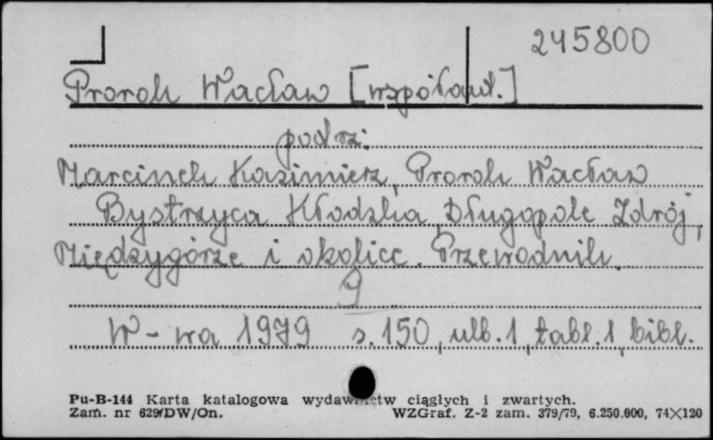 245800
Prorok Wacław [współaut.]
podrz:
Marcinek Kazimierz, Prorok Wacław
Bystrzyca Kłodzka, Długopole Zdrój,
Międzygórze i okolice. Przewodnik.
9
W-wa 1979 s. 150, ulb. 1, tabl. 1, bibl.
Pu-B-144 Karta katalogowa wydawnictw ciągłych i zwartych.
Zam. nr 629/DW/On. WZGraf. Z-2 zam. 379/79, 6.250.000, 74×120